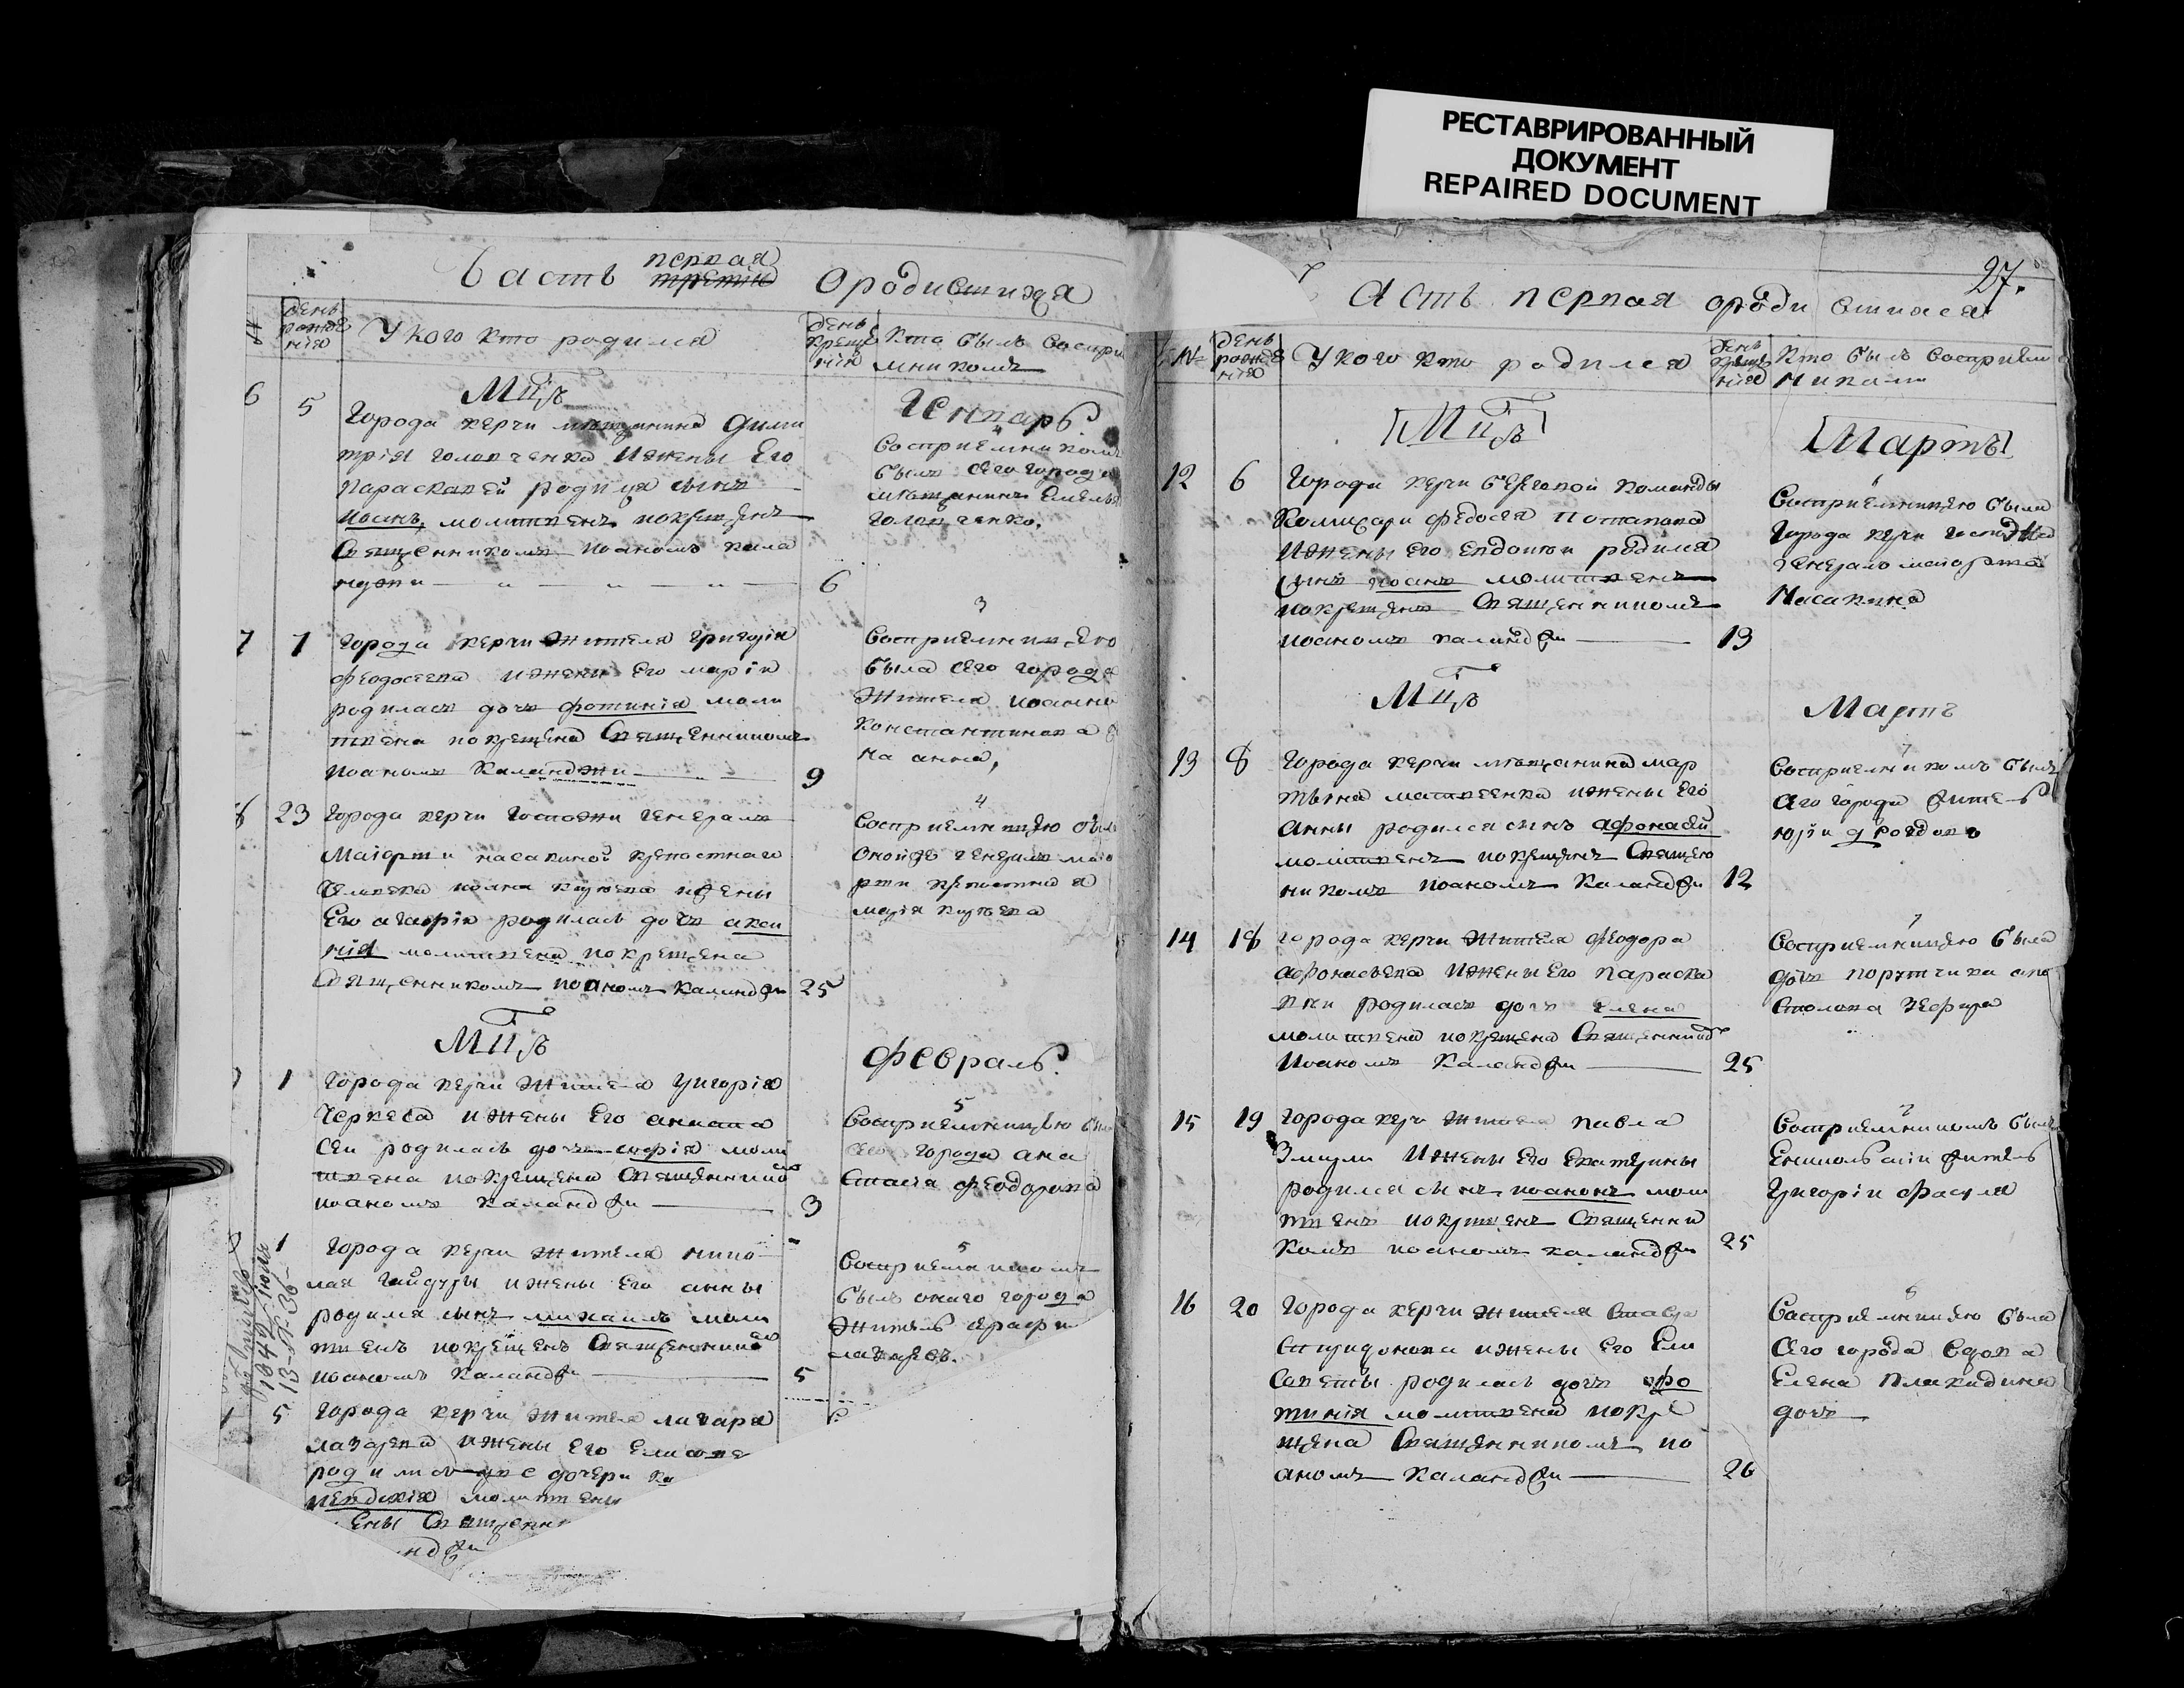 РЕСТАВРИРОВАННЫЙ
ДОКУМЕНТ
REPAIRED DOCUMENT
Часть первая
третия
ородившихся
день
рожде
нія
У кого кто родился
день
креще
нія
Кто былъ воспри
мникомъ
Мцъ
Генварь
6
5
Города керчи мещанина Дими
трія головченка ижены Его
параскевей родился сынъ
иоанъ, молитвенъ покрещенъ
Священникомъ иоаномъ кала
6
4
Восприемникомъ
былъ сего города
мещанинъ Емелья
головченко.
7
1
города керчи жителя григорія
феодосеева ижени Его маріи
родилась дочъ фотинія моли
твена покрещена Священникомъ
иоаномъ Каланджи
9
3
была сего города
жителя иоанна
Константинова
на анна,
23
города керчи госпожи генералъ
Маіорши насакиной крепостнаго
ижены
Его агафіи родилась дочъ аксі
нія молитвена покрещена
Священникомъ иоаномъ каланджи
25
4
Восприемницею была
оной же генералъ маіо
рши крепостная
марія
Мцъ
Февраль
1
города керчи жителя григорія
Черкеса ижены Его анаста
сеи родилась дочъ софія моли
твена покрещена Священнико
иоаномъ каланджи
3
5
Восприемницею была
сего города ана
стасія феодорова
1
Города керчи жителя нико
лая гайдуры ижены Его анны
родился сынъ михаилъ моли
твенъ покрещенъ Священнико
иоаномъ каланджи
5
5
Восприемникомъ
былъ онаго города
житель
лазаревъ.
5
города керчи жителя лазаря
лазарева ижены Его Елисаве
дочери
молитвены
ены Священни
нджи
27.
асть первая ородившися
№
день
рожде
нія
У кого кто родился
день
креще
нія
Кто былъ восприем
никомъ
Мцъ
Мартъ
12
6
Города керчи береговой команды
Комисара федосея потапова
ижены Его Евдокіи родился
сынъ иоанъ молитвенъ
покрещенъ Священникомъ
иоаномъ каланджи
13
6
Восприемницею была
города керчи госпожа
генералъ маіорша
Насакина
Мцъ
Мартъ
13
8
Города керчи мещанина мар
тына матвеенка ижены Его
анны родился сынъ афонасій
молитвенъ покрещенъ Священ
никомъ иоаномъ Каланджи
12
7
Восприемникомъ былъ
сего города житель
14
18
города керчи жителя феодора
афонасьева ижены Его параске
вии родилась дочъ елена
молитвена покрещена Священнико
иоаномъ Каланджи
25
7
Восприемницею была
дочъ порутчика апо
столова
15
19
города керч жителя павла
ижены Его Екатерины
родился сынъ иоанонъ моли
твенъ покрещенъ Священни
комъ иоаномъ каланджи
25
Восприемникомъ былъ
Ениколской житель
григорій
16
20
города керчи жителя
спиридонова ижены Его Ели
саветы родилась дочъ фо
тинія молитвена покре
щена Священникомъ ио
аномъ Каланджи
26
8
Восприемницею была
сего города вдова
Елена плакидина
дочъ